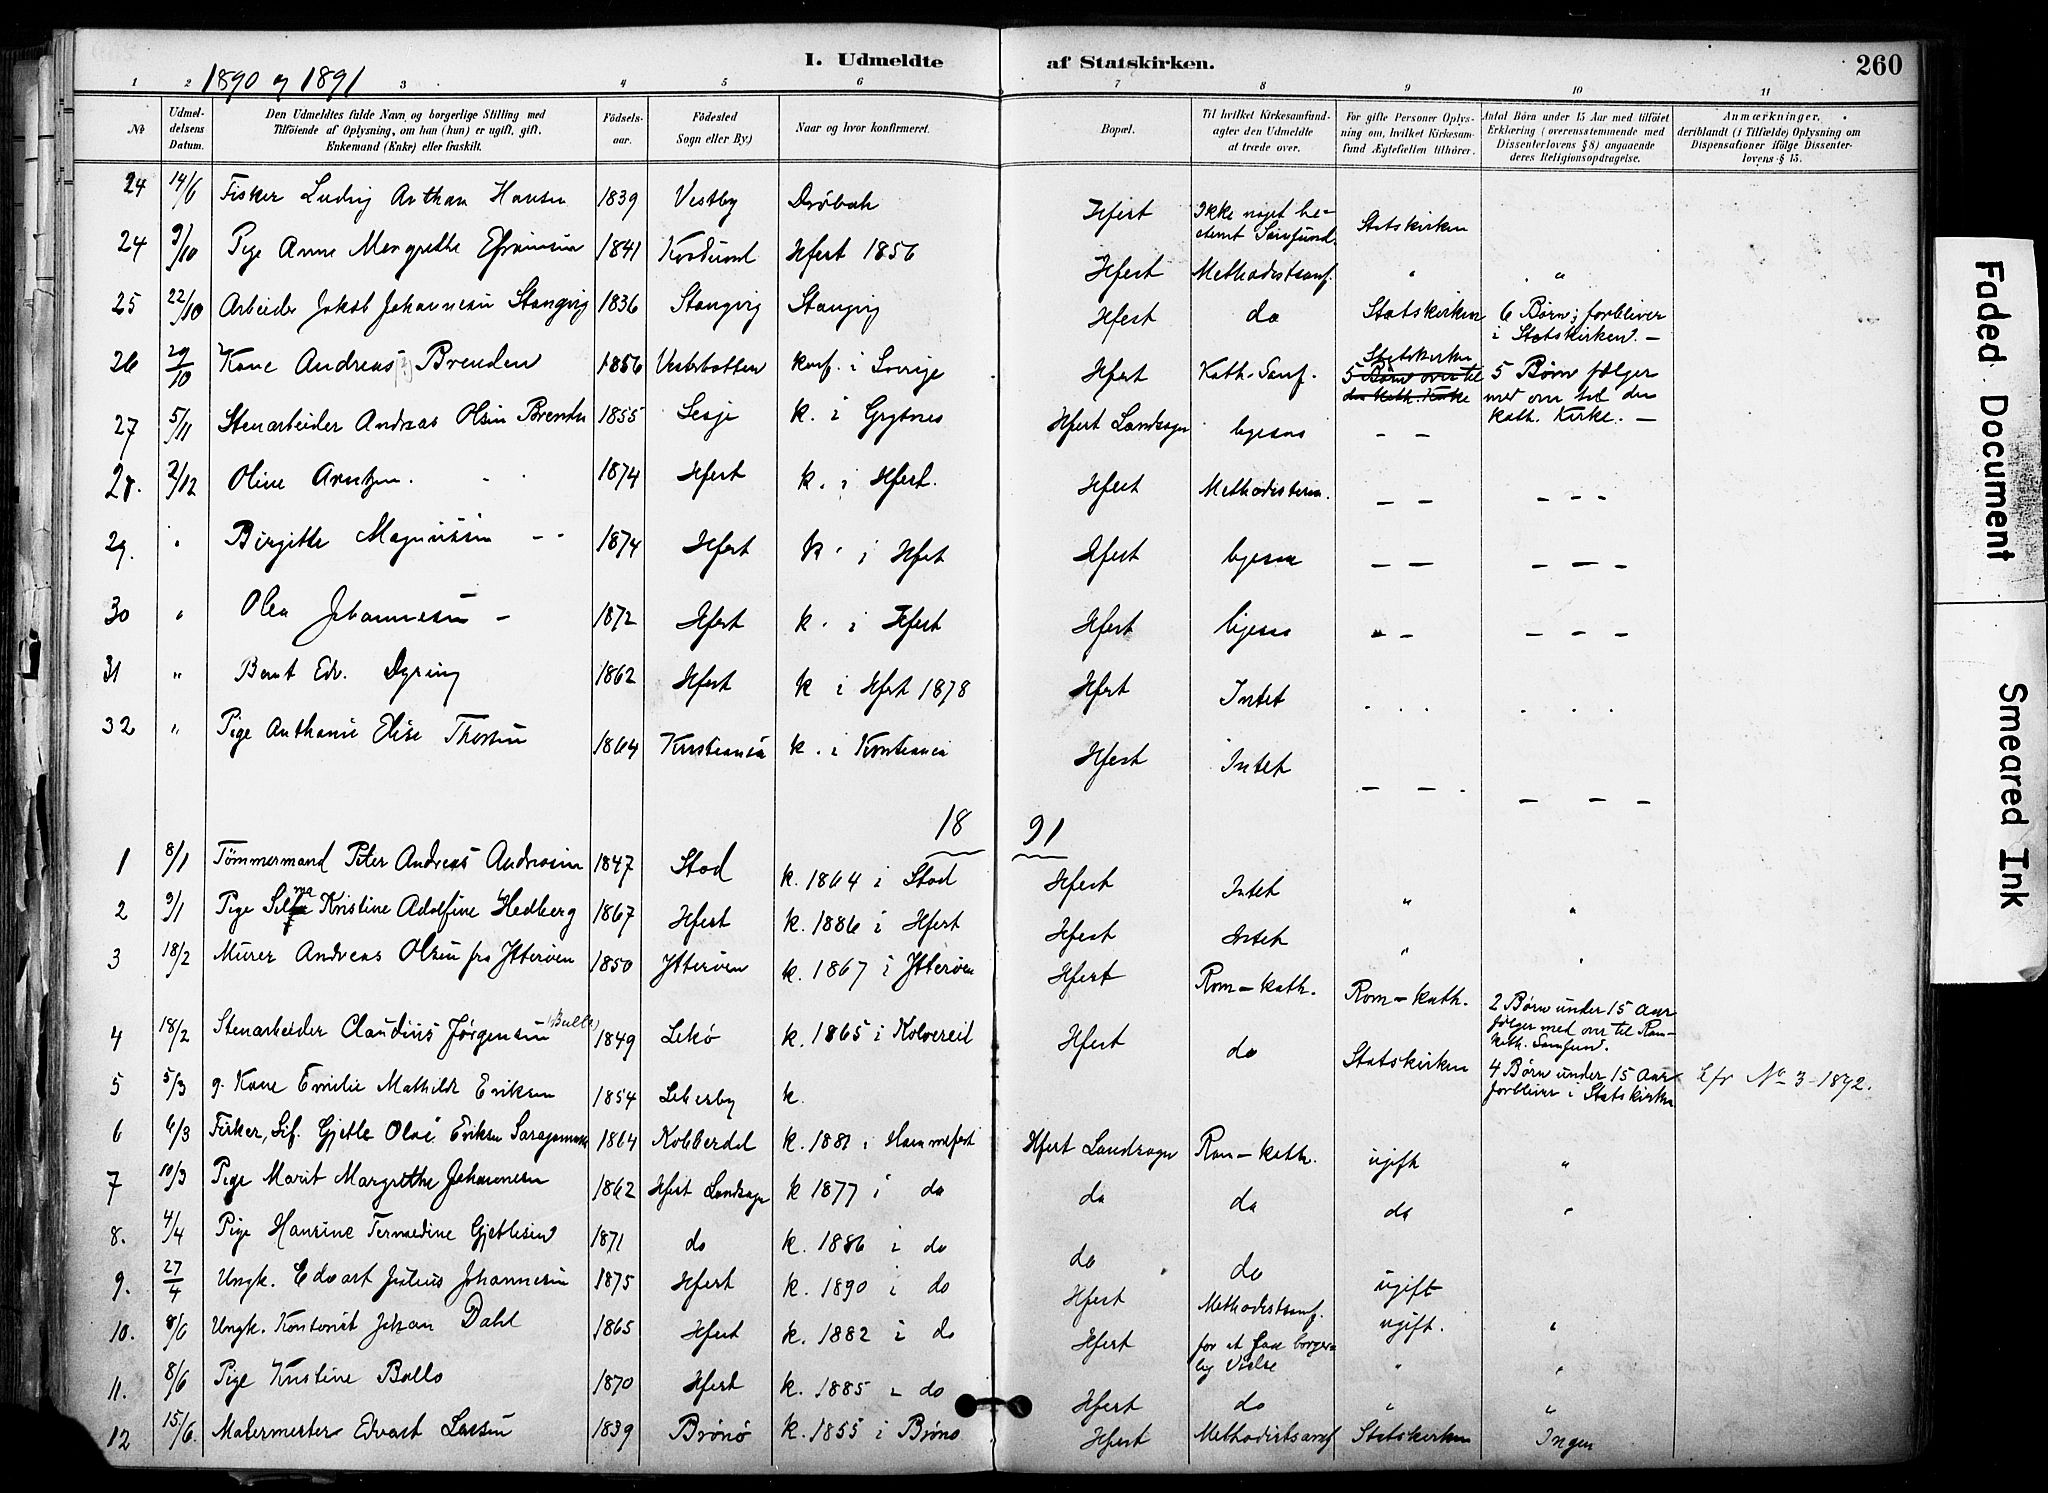 I. Udmeldte af Statskirken. 260
1890 og 1891
1 2 3 4 5 6 7 8 9 10 11
No Udmeldelsens Datum. Den Udmeldtes fulde Navn og borgerlige Stilling med Tilføiende af Oplysning, om han (hun) er ugift, gift, Enkemand (Enke) eller fraskilt. Fødselsaar. Fødested Sogn eller By.) Naar og hvor konfirmeret. Bopæl. Til hvilket Kirkesamfund agter den Udmeldte at træde over. For gifte Personer Oplysning om, hvilket Kirkesamfund Ægtefællen tilhører. Antal Børn under 15 Aar med tilføiet Erklæring (overensstemmende med Dissenterlovens § 8) angaaende deres Religionsopdragelse. Anmærkninger, deriblandt (i Tilfælde) Oplysning om Dispensationer ifølge Dissenterlovens § 15.
24 14/6 Fisker Ludvig Anthon Hansen 1839 Vestby Drøbak Hfest Ikke noget bestemt Samfund. Statskirken
24 9/10 Pige Anne Margrethe Efraimsen 1841 Hfest 1856 Hfest Methodistsamf. " "
25 22/10 Arbeider Jakob Johannesen Stangvig 1836 Stangvig Stangvig Hfest do Statskirken 6 Børn; forbliver i Statskirken. —
26 29/10 Kone Andreas Brenden 1856 Vesterbotten konf. i Sverige Hfest Kath. Samf. Statskirken 5 Børn over til den kath. Kirke 5 Børn følger med over til den kath. Kirke. —
27 5/11 Stenarbeider Andreas Olsen Brenden 1855 Lesje k. i Grytnes Hfest Landsogn ligesaa — —
28. 2/12 Oline Arntzen. 1874 Hfest k. i Hfest. Hfest Methodisterne. — — — — —
29. " Birgitte Magnussen - - 1874 Hfest k. i Hfest Hfest ligesaa — — — — —
30 " Olea Johannesen - 1872 Hfest k. i Hfest Hfest ligesaa — — — — —
31 " Bernt Edv. Dyring 1862 Hfest k i Hfest 1878 Hfest Intet . . . . . .
32 " Pige Anthonie Elise Thorsen 1864 Kristiania k. i Kristiania Hfest Intet — — . — — —
1891
1 8/1 Tømmermand Peter Andreas Andreasen 1847 Stod k. 1864 i Stod Hfest Intet " "
2 9/1 Pige Selma Kristine Adolfine Hedberg 1867 Hfest k. 1886 i Hfest Hfest Intet " "
3 18/2 Murer Andreas Olsen fra Ytterøen 1850 Ytterøen k. 1867 i Ytterøen Hfest Rom-kath. Rom-kath. 2 Børn under 15 Aar følger med over til Rom-kath. Samfund.
4 18/2 Stenarbeider Claudius Jørgensen (Balle) 1849 Lekø k. 1865 i Kolvereid Hfest do Statskirken 4 Børn under 15 Aar forbliver i Statskirken Cfr No 3-1892.
5 5/3 g. Kone Emilie Mathilde Eriksen 1854 Leberby k.
6 6/3 Fisker, Sif. Gjetle Olai Eriksen 1864 Kobberdal k. 1881 i Hammerfest Hfest Landsogn Rom-kath. ugift "
7 10/3 Pige Marit Margrethe Johannesen 1862 Hfest Landsogn k 1877 i do da da do "
8. 4/4 Pige Hansine Gjetlesen 1871 do k. 1886 i do do do
9. 27/4 Ungk. Edvart Julius Johannesen 1875 Hfest k. 1890 i do Hfest Methodistsamf. ugift
10. 8/6 Ungk. Kontorist Johan Dahl 1865 Hfest k. 1882 i do Hfest for at faa borgerlig Vielse ugift. "
11. 8/6 Pige Kristine Ballo 1870 Hfest k. 1885 i do Hfest do " "
12 15/6. Malermester Edvart Larsen 1839 Brønø k. 1855 i Brønø Hfest Methodistsamf Statskirken Ingen
Faded Document
Smeared Ink